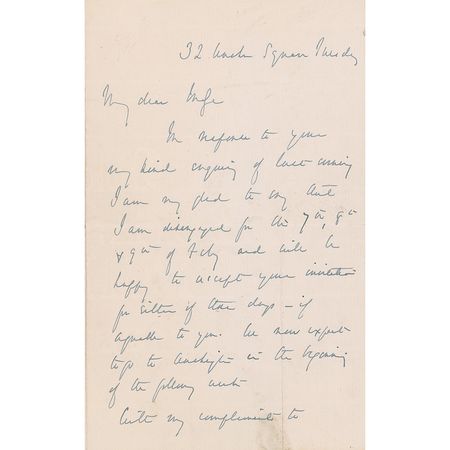 32 Square Tuesday
My dear
In reference to your
very kind enquiry of last evening
I am very glad to say that
I am disengaged for the 7th, 8th
& 9th of Feby and will be
happy to accept your invitation
for either of those days - if
agreeable to you. We now expect
to go to in the beginning
of the following week
With my compliments to